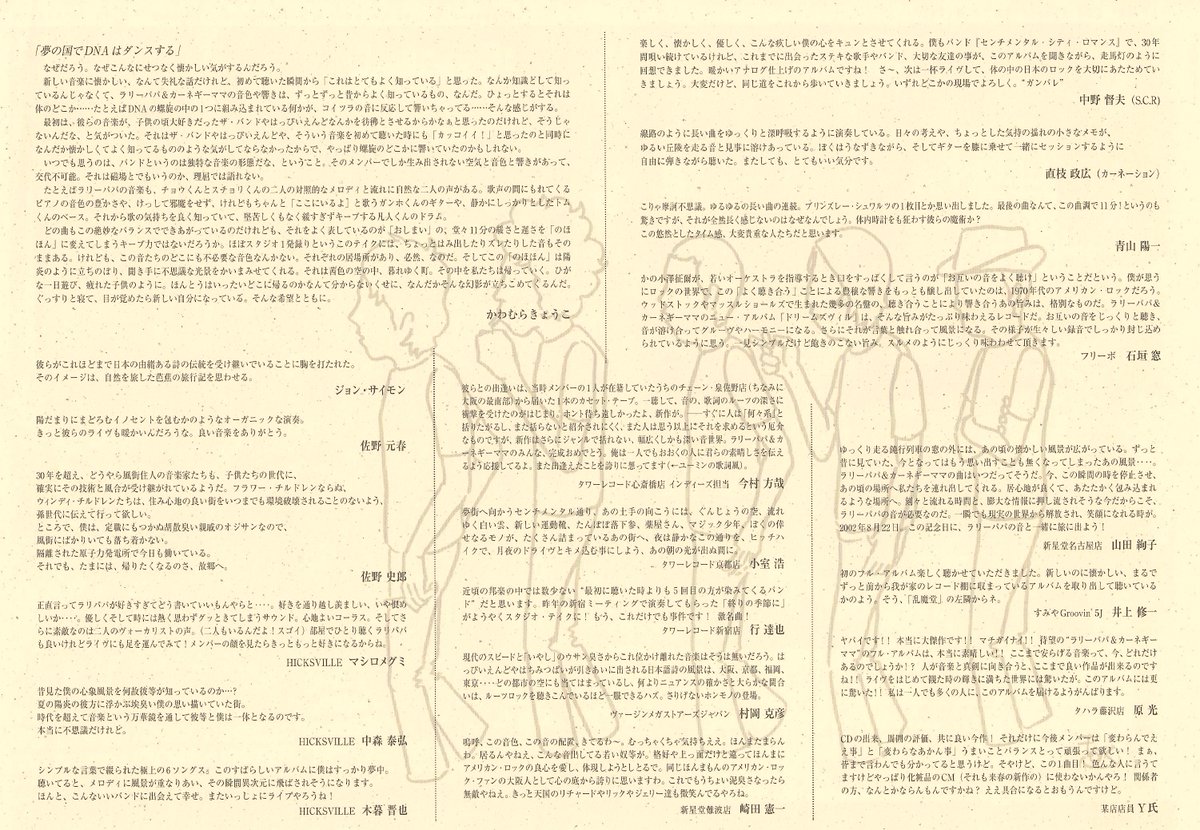 「夢の国でDNAはダンスする」
なぜだろう。なぜこんなにせつなく懐かしい気がするんだろう。
新しい音楽に懐かしい、なんて失礼な話だけれど、初めて聴いた瞬間から「これはとてもよく知っている」と思った。なんか知識として知っ
ているんじゃなくて、ラリーパパ&カーネギーママの音色や響きは、ずっとずっと昔からよく知っているもの、なんだ。ひょっとするとそれは
体のどこか……たとえばDNAの螺旋の中の1つに組み込まれている何かが、コイツラの音に反応して響いちゃってる……そんな感じがする。
最初は、彼らの音楽が、子供の頃大好きだったザ・バンドやはっぴいえんどなんかを彷彿とさせるからかなぁと思ったのだけれど、そうじゃ
ないんだな、と気がついた。それはザ・バンドやはっぴいえんどや、そういう音楽を初めて聴いた時にも「カッコイイ!」と思ったのと同時に
なんだか懐かしくてよく知ってるもののような気がしてならなかったから で、やっぱり螺旋のどこかに響いていたのかもしれない。
いつでも思うのは、バンドというのは独特な音楽の形態だな、ということ。そのメンバーでしか生み出されない空気と音色と響きがあって、
交代不可能。それは磁場とでもいうのか、理屈では語れない。
たとえばラリーパパの音楽も、チョウくんとスチョリくんの二人の対照的なメロディと流れに自然な二人の声がある。歌声の間にもれてくる
ピアノの音色の豊かさや、けっして邪魔をせず、けれどもちゃんと「ここにいるよ」と歌うガンホくんのギターや、静かにしっかりとしたトム
くんのベース。それから歌の気持ちを良く知っていて、堅苦しくもなく緩すぎずキープする凡人くんのドラム。
どの曲もこの絶妙なバランスでできあがっているのだけれども、それをよく表しているが「おしまい」の、堂々11分の緩さと遅さを「のほ
ほん」に変えてしまうキープ力ではないだろうか。ほぼスタジオ1発録りというこのテイクには、ちょっとはみ出したりズレたりした音もその
ままある。けれども、この音たちのどこにも不必要な音色なんかない。それぞれの居場所があり、必然、なのだ。そしてこの「のほほん」は陽
炎のように立ちのぼり、聞き手に不思議な光景をかいまみせてくれる。それは茜色の空の中、暮れゆく町。その中を私たちは帰っていく。ひが
な一日遊び、疲れた子供のように。ほんとうはいったいどこに帰るのかなんて分からないくせに、なんだかそんな幻影が立ちこめてくるんだ。
ぐっすりと寝て、目が覚めたら新しい自分になっている。そんな希望とともに。
かわむらきょうこ
彼らがこれほどまで日本の由緒ある詩の伝統を受け継いでいることに胸を打たれた。
そのイメージは、自然を旅した芭蕉の旅行記を思わせる。
ジョン・サイモン
陽だまりにまどろむイノセントを包むかのようなオーガニックな演奏。
きっと彼らのライヴも暖かいんだろうな。良い音楽をありがとう。
佐野 元春
30年を超え、どうやら風街住人の音楽家たちも、子供たちの世代に、
確実にその技術と風合が受け継がれているようだ。フラワー・チルドレンならぬ、
ウィンディ・チルドレンたちは、住み心地の良い街をいつまでも環境破壊されることのないよう、
孫世代に伝えて行って欲しい。
ところで、僕は、定職にもつかぬ居散臭い親戚のオジサンなので、
風街にばかりいても落ち着かない。
隔離された原子力発電所で今日も働いている。
それでも、たまには、帰りたくなるのさ、故郷へ。
佐野 史郎
正直言ってラリパパが好きすぎてどう書いていいもんやらと‥‥。好きを通り越し羨ましい、いや恨め
しいか‥‥。優しくそして時には熱く思わずグッときてしまうサウンド。心地よいコーラス。そしてさ
らに素敵なのは二人のヴォーカリストの声。(二人もいるんだよ!スゴイ)部屋でひとり聴くラリパパ
も良いけれどライヴにも足を運んでみて!メンバーの顔を見たらきっともっと好きになるからね。
HICKSVILLE マシロメグミ
昔見た僕の心象風景を何故彼等が知っているのか…?
夏の陽炎の彼方に浮かぶ埃臭い僕の思い描いていた街。
時代を超えて音楽という万華鏡を通して彼等と僕は一体となるのです。
本当に不思議だけれど。
HICKSVILLE 中森 泰弘
シンプルな言葉で綴られた極上の6ソングス。このすばらしいアルバムに僕はすっかり夢中。
聴いてると、メロディに風景が重なりあい、その瞬間異次元に飛ばされそうになります。
ほんと、こんないいバンドに出会えて幸せ。またいっしょにライブやろうね!
HICKSVILLE 木暮 晋也
彼らとの出逢いは、当時メンバーの1人が在籍していたうちのチェーン・泉佐野店(ちなみに
大阪の最南部)から届いた1本のカセット・テープ。一聴して、音の、歌詞のルーフの深さに
衝撃を受けたのがはじまり。ホント待ち遠しかったよ、新作が。――すぐに人は「何々系」と
括りたがるし、また括らないと紹介されにくく、また人は思う以上にそれを求めるという厄介
なものですが、新作はさらにジャンルで括れない、幅広くしかも深い音世界。ラリーパパ&カ
ーネギーママのみんな、完成おめでとう。俺は一人でもおおくの人に君らの素晴しさを伝え
るよう応援してるよ。また出逢えたことを誇りに思ってます(←ユーミンの歌詞風)。
タワーレコード心斎橋店 インディーズ担当 今村 方哉
夢街へ向かうセンチメンタル通り。あの土手の向こうには、ぐんじょうの空、流れ
ゆく白い雲、新しい運動靴、たんぽぽ落下傘、薬屋さん、マジック少年。ぼくの倖
せなるモノが、たくさん詰まっているあの街へ、夜は静かなこの通りを、ヒッチハ
イクで、月夜のドライヴとキメ込む事にしよう、あの朝の光が出ぬ間に。
タワーレコード京都店 小室 浩
近頃の邦楽の中では数少ない“最初に聴いた時よりも5回目の方が染みてくるバン
ド”だと思います。昨年の新宿ミーティングで演奏してもらった「終りの季節に」
がようやくスタジオ・テイクに! もう、これだけでも事件です! 激名曲!
タワーレコード新宿店 行 達也
現代のスピードと「いやし」のウサン臭さからこれ位かけ離れた音楽はそうは無いだろう。は
っぴいえんどやはちみつぱいが引きあいに出される日本語詩の風景は、大阪、京都、福岡、
東京…‥どの都市の空にも当てはまっているし、何よりニュアンスの確かさと大らかな間合
いは、ルーツロックを聴きこんでいるほど一服できるハズ。さりげないホンモノの登場。
ヴァージンメガストアーズジャパン 村岡 克彦
嗚呼、この音色、この音の配置、きてるわ~。むっちゃくちゃ気持ちええ。ほんまたまらん
わ。居るんやねえ、こんな音出してる若い奴等が。格好や上っ面だけと違ってほんまに
アメリカン・ロックの良心を愛し、体現しようとしとるで。同じほんまもんのアメリカン・ロッ
ク・ファンの大阪人として心の底から誇りに思いますわ。これでもうちょい泥臭さなったら
無敵やねえ。きっと天国のリチャードやリックやジェリー達も微笑んでるやろね。
新星堂難波店 崎田 憲一
楽しく、懐かしく、優しく、こんな疚しい僕の心をキュンとさせてくれる。僕もバンド『センチメンタル・シティ・ロマンス』で、30年
間唄い続けているけれど、これまでに出会ったステキな歌手やバンド、大切な友達の事が、このアルバムを聞きながら、走馬灯のように
回想できました。暖かいアナログ仕上げのアルバムですね! さ~、次は一杯ライヴして、体の中の日本のロックを大切にあたためてい
きましょう。大変だけど、同じ道をこれから歩いていきましょう。いずれどこかの現場でよろしく。“ガンバレ”
中野 督夫 (S.C.R)
線路のように長い曲をゆっくりと深呼吸するように演奏している。日々の考えや、ちょっとした気持の揺れの小さなメモが、
ゆるい丘陵を走る音と見事に溶けあっている。ぼくはうなずきながら、そしてギターを膝に乗せて一緒にセッションするように
自由に弾きながら聴いた。またしても、とてもいい気分です。
直枝 政広 (カーネーション)
こりゃ摩訶不思議。ゆるゆるの長い曲の連続。ブリンズレー・シュワルツの1枚目とか思い出しました。最後の曲なんて、この曲調で11分!というのも
驚きですが、それが全然長く感じないのはなぜなんでしょう。体内時計をも狂わす彼らの魔術か?
この悠然としたタイム感、大変貴重な人たちだと思います。
青山 陽一
かの小澤征爾が、若いオーケストラを指導するとき口をすっぱくして言うのが「お互いの音をよく聴け」ということだという。僕が思う
にロックの世界で、この「よく聴き合う」ことによる豊穣な響きをもっとも醸し出していたのは、1970年代のアメリカン・ロックだろう。
ウッドストックやマッスルショールズで生まれた幾多の名盤の、聴き合うことにより響き合うあの旨みは、格別なものだ。ラリーパパ&
カーネギーママのニュー・アルバム「ドリームズヴィル」は、そんな旨みがたっぷり味わえるレコードだ。お互いの音をじっくりと聴き、
音が溶け合ってグルーヴやハーモニーになる。さらにそれが言葉と触れ合って風景になる。その様子が生々しい録音でしっかり封じ込め
られているように思う。一見シンプルだけど飽きのこない旨み。スルメのようにじっくり味わわせて頂きます。
フリーボ 石垣 窓
ゆっくり走る鈍行列車の窓の外には、あの頃の懐かしい風景が広がっている。ずっと
昔に見ていた、今となってはもう思い出すことも無くなってしまったあの風景‥‥。
ラリーパパ&カーネギーママの曲はいつだってそうだ。今、この瞬間の時を停止させ、
あの頃の場所へ私たちを連れ出してくれる。居心地が良くて、あたたかく包み込まれ
るような場所へ。刻々と流れる時間と、膨大な情報に押し流されそうな今だからこそ、
ラリーパパの音が必要なのだ。一瞬でも現実の世界から解放され、笑顔になれる時が。
2002年8月22日。この記念日に、ラリーパパの音と一緒に旅に出よう!
新星堂名古屋店 山田 絢子
初のフル・アルバム楽しく聴かせていただきました。新しいのに懐かしい、まるで
ずっと前から我が家のレコード棚に収まっているアルバムを取り出して聴いている
かのよう。そう、「乱魔堂」の左隣からネ。
すみやGroovin' 5J 井上 修一
ヤバイです!! 本当に大傑作です!! マチガイナイ!! 待望の“ラリーパパ&カーネギー
ママ”のフル・アルバムは、本当に素晴しい!! ここまで安らげる音楽って、今、どれだけ
あるのでしょうか!? 人が音楽と真剣に向き合うと、ここまで良い作品が出来るのです
ね!!ライヴをはじめて観た時の輝きに満ちた世界には驚いたが、このアルバムには更
に驚いた!! 私は一人でも多くの人に、このアルバムを届けるようがんばります。
タハラ藤沢店 原 光
CDの出来、周囲の評価、共に良い今作! それだけに今後メンバーは「変わらんでえ
え事」と「変わらなあかん事」うまいことバランスとって頑張って欲しい! まぁ、
皆まで言わんでも分かってると思うけど。そやけど、この1曲目!色んな人に言うて
ますけどやっぱり化粧品のCM(それも来春の新作の)に使わないかんやろ! 関係者
の方、なんとかならんもんですかね? ええ具合になるとおもうんですけど。
某店店員 Y氏